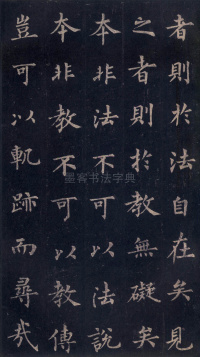 者則於法自在矣見
之者則於教無礙矣
本非法不可以法說
本非教不可以教傳
豈可以軌跡而尋哉
墨客书法字典